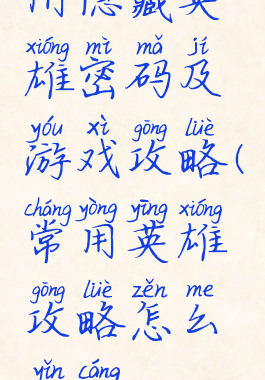 用隐藏英
xióng mì mǎ jí
雄密码及
yóu xì gōng lüè
游戏攻略(
cháng yòng yīng xióng
常用英雄
gōng lüè zěn me
攻略怎么
yǐn cáng